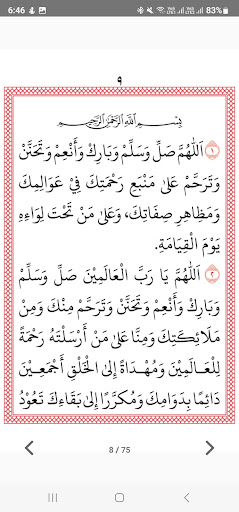 6:46
83%
٩
بِسْمِ اللَّهِ الرَّحْمٰنِ الرَّحِيمِ
١ اَللّٰهُمَّ صَلِّ وَسَلِّمْ وَبَارِكْ وَأَنْعِمْ وَتَحَنَّنْ
وَتَرَحَّمْ عَلىٰ مَنْبَعِ رَحْمَتِكَ فِيْ عَوَالِمِكَ
وَمَظَاهِرِ صِفَاتِكَ، وَعَلىٰ مَنْ تَحْتَ لِوَاءِهِ
يَوْمَ الْقِيَامَةِ.
٢ اَللّٰهُمَّ يَا رَبَّ الْعَالَمِيْنَ صَلِّ وَسَلِّمْ
وَبَارِكْ وَأَنْعِمْ وَتَحَنَّنْ وَتَرَحَّمْ مِنْكَ وَمِنْ
مَلَائِكَتِكَ وَمِنَّا عَلىٰ مَنْ أَرْسَلْتَهُ رَحْمَةً
لِلْعَالَمِيْنَ وَمُهْدَاةً إِلىَ الْخَلْقِ أَجْمَعِيْنَ
دَائِمًا بِدَوَامِكَ وَمُكَرَّرًا إِلىٰ بَقَاءِكَ تَعُوْدُ
8 / 75